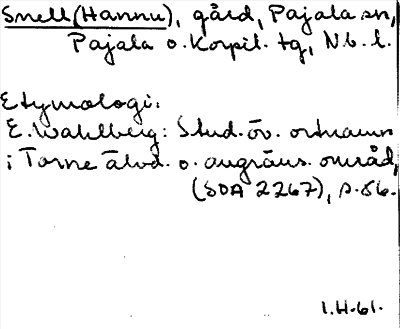 Snell (Hannu), gård, Pajala sn,
Pajala o. Korpil. tg, Nb. l.
Etymologi:
E. Wahlberg: Stud. öv. ortnamn
i Torne älvd. o. angräns. områd,
(SOA 2267), s. 56.
I.H. 61.